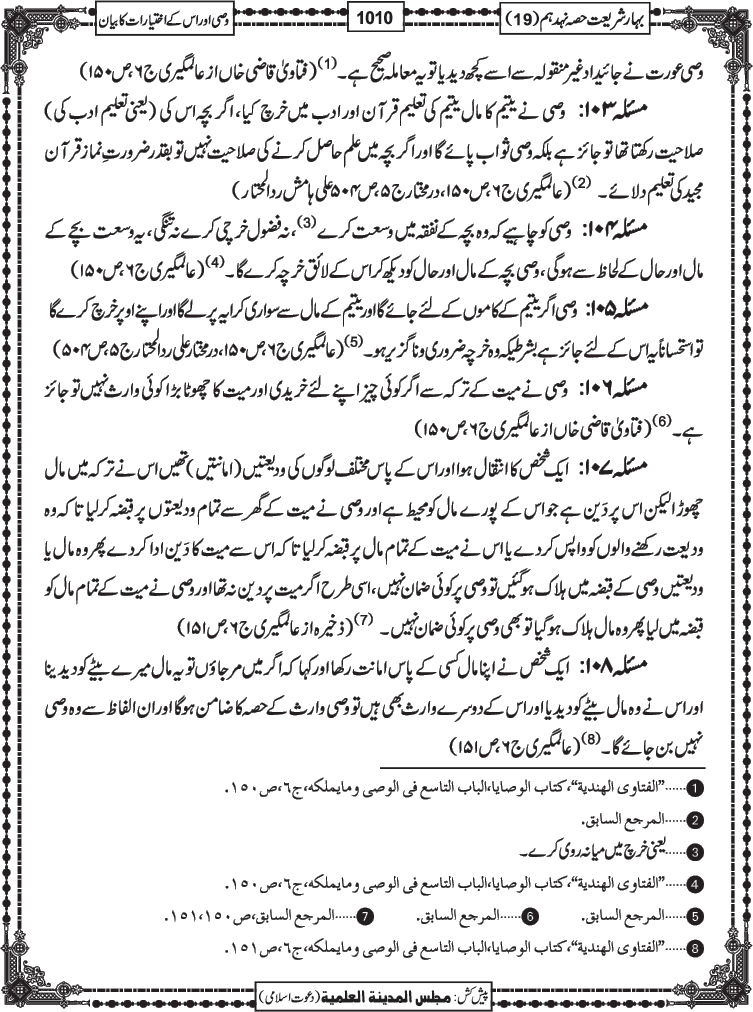 بہار شریعت حصہ نہدہم (19)
1010
وصی اور اس کے اختیارات کا بیان
وصی عورت نے جائیداد غیر منقولہ سے اسے کچھ دیدیا تو یہ معاملہ صحیح ہے۔(1) (فتاویٰ قاضی خاں از عالمگیری ج۶، ص۱۵۰)
مسئلہ ۱۰۳: وصی نے یتیم کا مال یتیم کی تعلیم قرآن اور ادب میں خرچ کیا، اگر بچہ اس کی (یعنی تعلیم ادب کی)
صلاحیت رکھتا تھا تو جائز ہے بلکہ وصی ثواب پائے گا اور اگر بچہ میں علم حاصل کرنے کی صلاحیت نہیں تو بقدر ضرورتِ نماز قرآن
مجید کی تعلیم دلائے۔ (2) (عالمگیری ج۶، ص۱۵۰، درمختار ج۵، ص۵۰۴ علی ہامش ردالمحتار)
مسئلہ ۱۰۴: وصی کو چاہیے کہ وہ بچہ کے نفقہ میں وسعت کرے(3)، نہ فضول خرچی کرے نہ تنگی، یہ وسعت بچے کے
مال اور حال کے لحاظ سے ہوگی، وصی بچہ کے مال اور حال کو دیکھ کر اس کے لائق خرچہ کرے گا۔(4) (عالمگیری ج۶، ص۱۵۰)
مسئلہ ۱۰۵: وصی اگر یتیم کے کاموں کے لئے جائے گا اور یتیم کے مال سے سواری کرایہ پر لے گا اور اپنے اوپر خرچ کرے گا
تو استحساناً یہ اس کے لئے جائز ہے بشرطیکہ وہ خرچہ ضروری و ناگزیر ہو۔(5) (عالمگیری ج۶، ص۱۵۰، درمختار علی ردالمحتار ج۵، ص۵۰۴)
مسئلہ ۱۰۶: وصی نے میت کے ترکہ سے اگر کوئی چیز اپنے لئے خریدی اور میت کا چھوٹا بڑا کوئی وارث نہیں تو جائز
ہے۔(6) (فتاویٰ قاضی خاں از عالمگیری ج۶، ص۱۵۰)
مسئلہ ۱۰۷: ایک شخص کا انتقال ہوا اور اس کے پاس مختلف لوگوں کی ودیعتیں (امانتیں) تھیں اس نے ترکہ میں مال
چھوڑا لیکن اس پر دَین ہے جو اس کے پورے مال کو محیط ہے اور وصی نے میت کے گھر سے تمام ودیعتوں پر قبضہ کرلیا تاکہ وہ
ودیعت رکھنے والوں کو واپس کردے یا اس نے میت کے تمام مال پر قبضہ کرلیا تاکہ اس سے میت کا دَین ادا کردے پھر وہ مال یا
ودیعتیں وصی کے قبضہ میں ہلاک ہوگئیں تو وصی پر کوئی ضمان نہیں، اسی طرح اگر میت پر دین نہ تھا اور وصی نے میت کے تمام مال کو
قبضہ میں لیا پھر وہ مال ہلاک ہوگیا تو بھی وصی پر کوئی ضمان نہیں۔ (7) (ذخیرہ از عالمگیری ج۶، ص۱۵۱)
مسئلہ ۱۰۸: ایک شخص نے اپنا مال کسی کے پاس امانت رکھا اور کہا کہ اگر میں مرجاؤں تو یہ مال میرے بیٹے کو دیدینا
اور اس نے وہ مال بیٹے کو دیدیا اور اس کے دوسرے وارث بھی ہیں تو وصی وارث کے حصہ کا ضامن ہوگا اور ان الفاظ سے وہ وصی
نہیں بن جائے گا۔(8) (عالمگیری ج۶، ص۱۵۱)
1......"الفتاوی الھندیة"، کتاب الوصایا، الباب التاسع فی الوصی ومایملکه، ج٦، ص١٥٠.
2......المرجع السابق.
3......یعنی خرچ میں میانہ روی کرے۔
4......"الفتاوی الھندیة"، کتاب الوصایا، الباب التاسع فی الوصی ومایملکه، ج٦، ص١٥٠.
5......المرجع السابق. 6......المرجع السابق. 7......المرجع السابق، ص١٥٠، ١٥١.
8......"الفتاوی الھندیة"، کتاب الوصایا، الباب التاسع فی الوصی ومایملکه، ج٦، ص١٥١.
پیش کش: مجلس المدینة العلمیة (دعوت اسلامی)